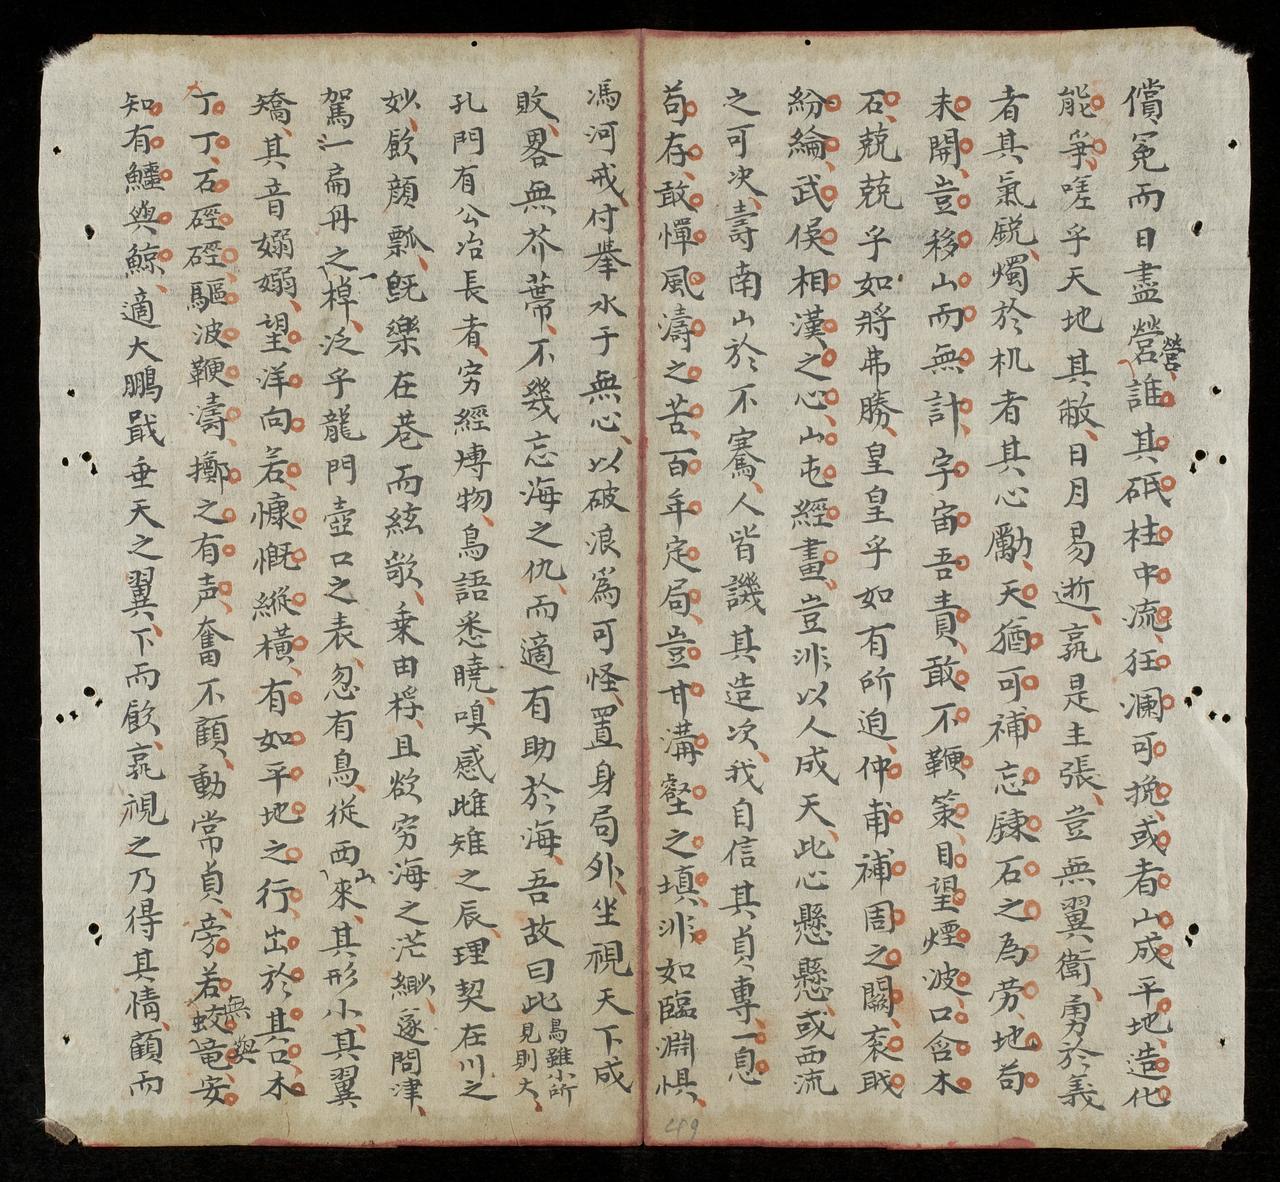 償冤而日盡營營誰其砥柱中流狂瀾可挽或者山成平地造化
能爭嗟乎天地其敝日月易逝孰是主張豈無翼衛勇於義
者其氣銳燭於机者其心勵天猶可補忘鍊石之為劳地苟
未開豈移山而無計宇宙吾責敢不鞭策目望煙波口含木
石兢兢乎如將弗勝皇皇乎如有所迫仲甫補周之闕袞戢
紛綸武侯相漢之心山屯經畫豈非以人成天此心懸懸或西流
之可決壽南山於不騫人皆譏其造次我自信其貞專一息
苟存敢憚風濤之苦百年定局豈甘溝壑之填非如臨淵惧
馮河戒付挙水于無心以破浪為可怪置身局外坐視天下成
敗畧無芥蒂不幾忘海之仇而適有助於海吾故曰此鳥雖小所見則大
孔門有公冶長者穷經博物鳥語悉曉嗅感雌雉之辰理契在川之
妙飲顏瓢既樂在巷而絃歌乗由桴且欲穷海之茫緲遂問津
駕一扁舟之棹泛乎龍門壺口之表忽有鳥從西山來其形小其翼
矯其音嫋嫋望洋向若慷慨縱橫有如平地之行出於其口木
丁丁石硜硜驅波鞭濤擲之有声奮不顧動常貞旁若無蛟與竜安
知有鱷與鯨適大鵬戢垂天之翼下而飲焉視之乃得其情顧而
49